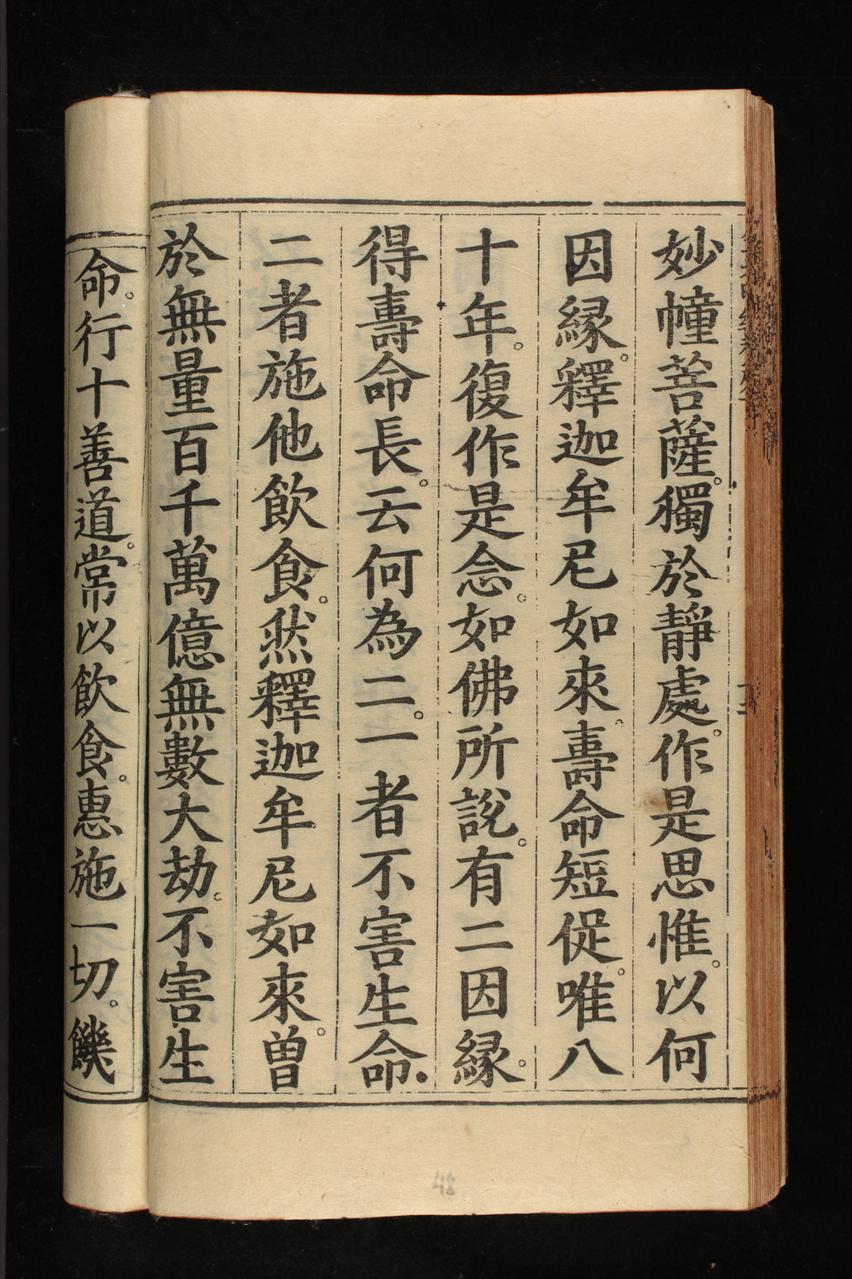 妙幢菩薩。獨於靜處。作是思惟。以何
因緣。釋迦牟尼如來。壽命短促。唯八
十年。復作是念。如佛所說。有二因緣。
得壽命長。云何為二。一者不害生命.
二者施他飲食。然釋迦牟尼如來。曾
於無量百千萬億無數大劫。不害生
命。行十善道。常以飲食。惠施一切。饑
48